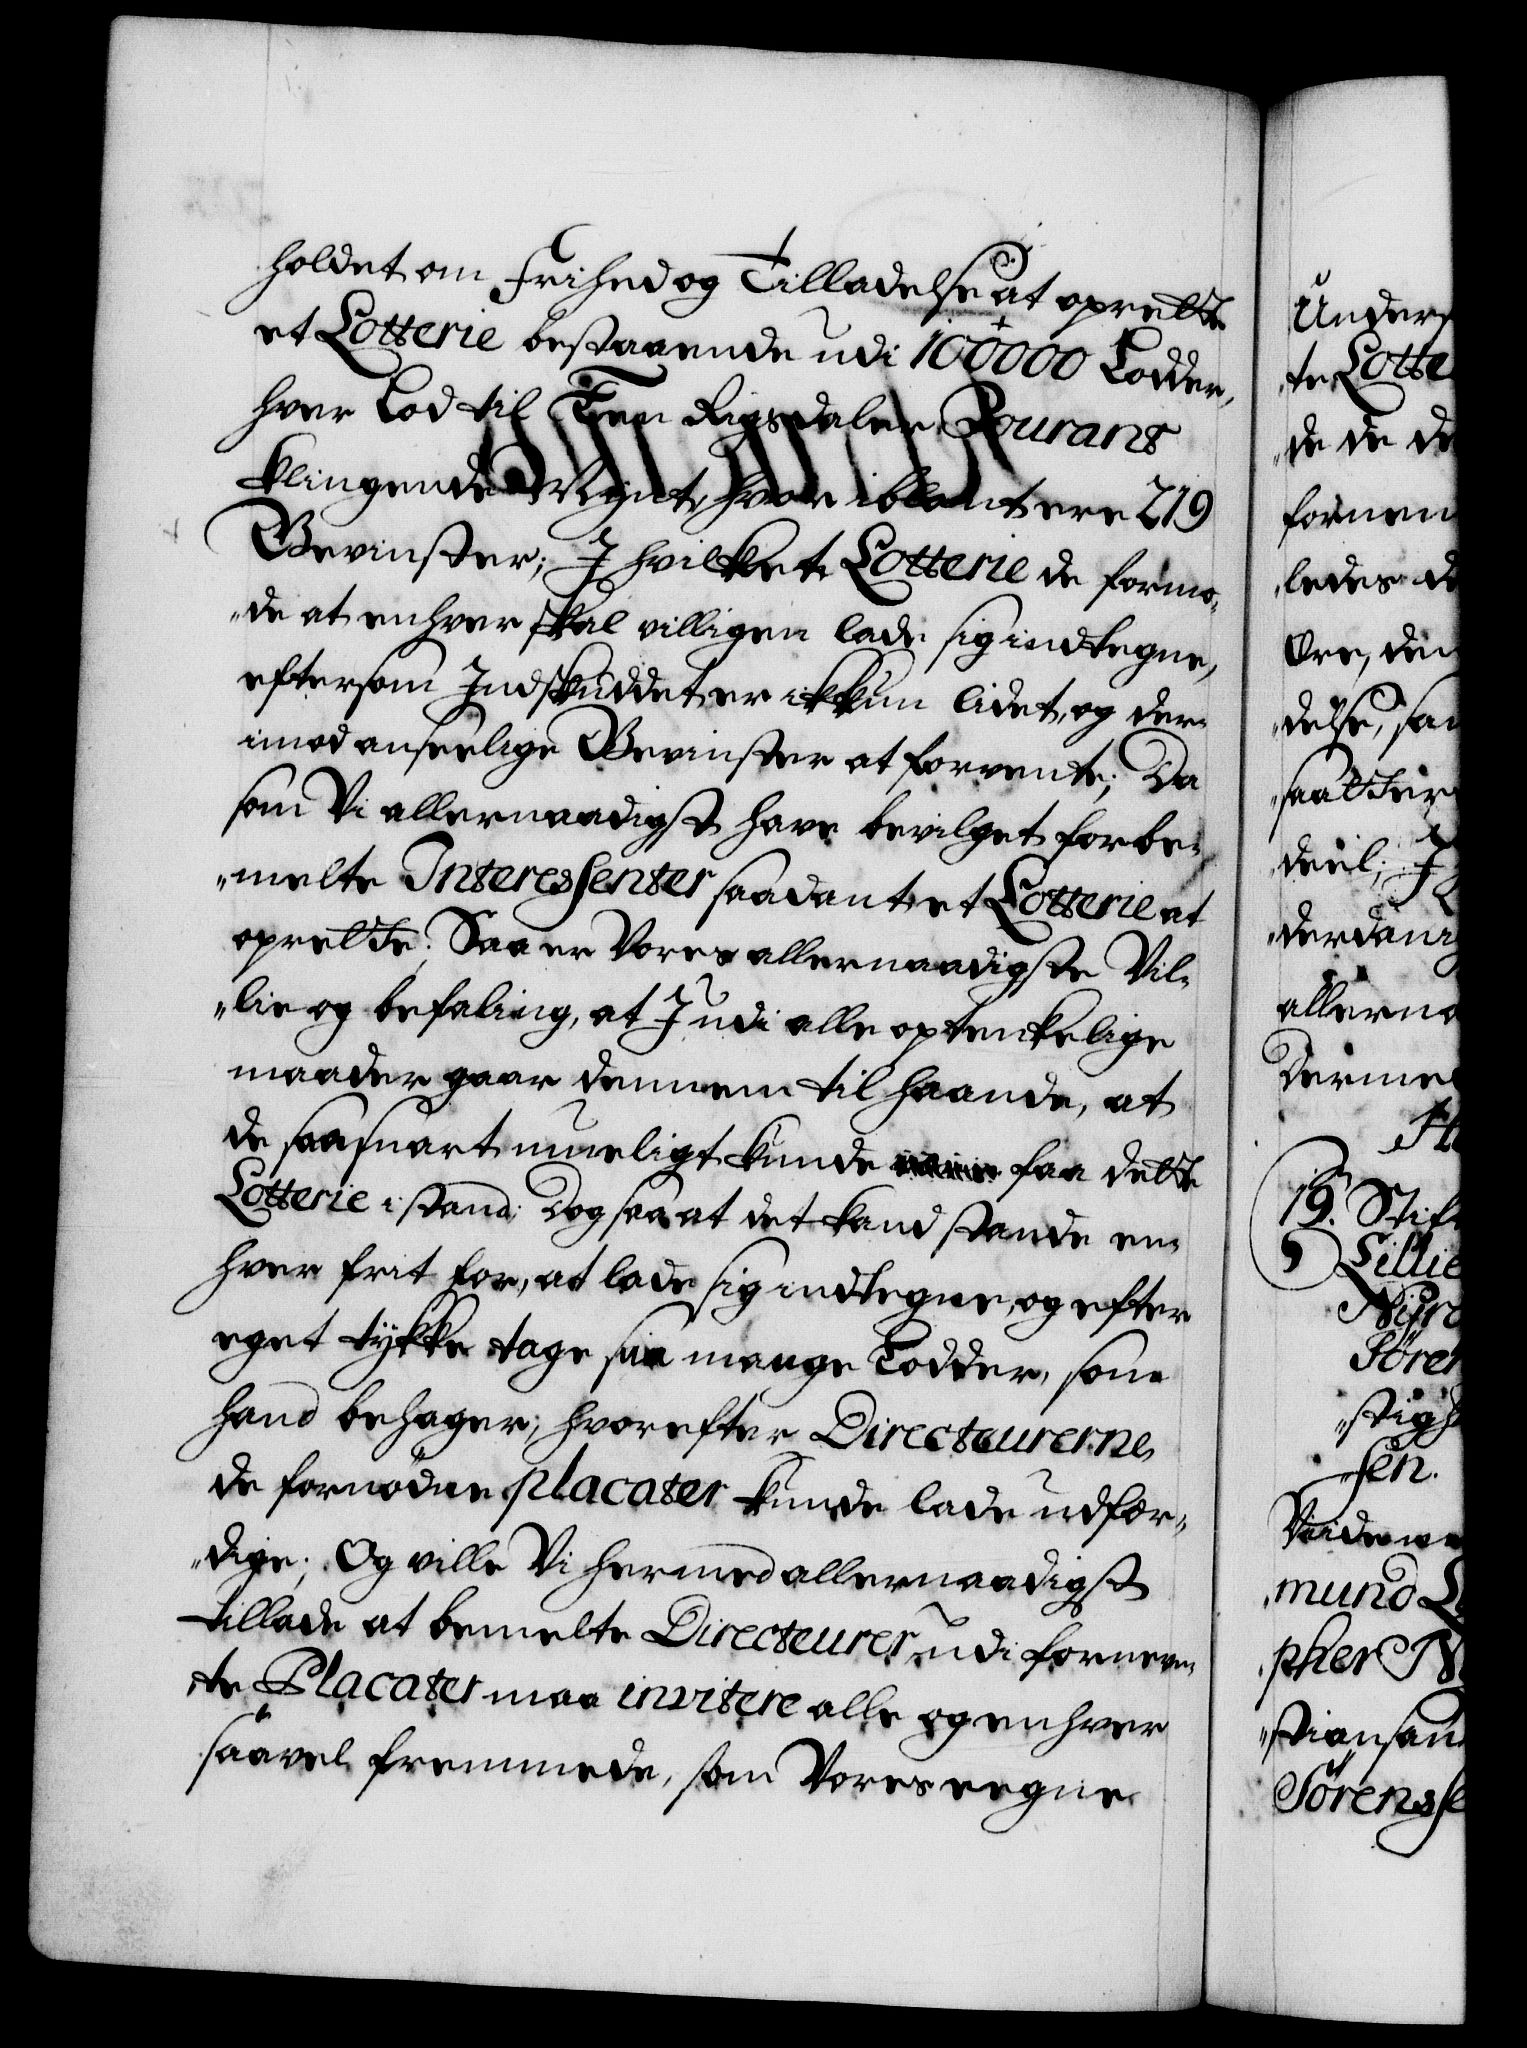 holdet om Frihed og Tilladelse at oprette
et Lotterie bestaaende udi 100000 Lodder,
hver Lod til Een Rigsdaler Courant
klingende Mynt, hvor iblant ere 219
Gevinster; J hvilket Lotterie de formo„
„de at enhver skal villigen lade sig indtegne,
eftersom Indskuddet er ikkun lidet, og der„
imod anseelige Gevinster at forvente; Da
som Vi allernaadigst have bevilget forbe„
„melte Interessenter saadant et Lotterie at
oprette; Saa er Vores allernaadigste Vil„
„lie og befaling, at J udi alle optenkelige
maader gaar dennem til haande, at
de saasnart mueligt kunde faa dette
Lotterie i stand; Dog saa at det kand stande en„
hver frit for, at lade sig indtegne, og efter
eget tykke tage saa mange Lodder, som
hand behager; hvorefter Directeurerne
de fornødne placater kunde lade udfær„
„dige; Og ville Vi hermed allernaadigst
tillade at bemelte Directeurer udi fornevn„
te Placater maa invitere alle og enhver
saavel fremmede, som Vores eegne
Unders
te Lotte
de de de
fornen
ledes de
Øre, den
delse, sa
saatter
deel; J
derdanig
allerna
Dermed
19. Stift
Lillie
Niro
Sören
stigh
sen.
Viide
mund L
pher N
stiansan
Sörensse